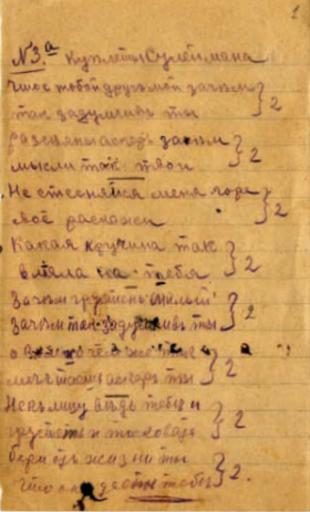 2
№3.а Куплеты Сулеймана
Что с тобой другъ мой зачѣмъ
так задумчивъ ты } 2
разсѣяны аскеръ зачѣм
мысли так твои } 2
Не стесняйся меня горе
своё раскажи } 2
Какая кручина так
взяла на тебя } 2
Зачѣм грустенъ милый
Зачѣм так задумчивъ ты } 2
о чем же ты
аскеръ ты } 2
Не къ лицу вѣдь тебѣ и
грустить и тосковать } 2
бери отъ жизни ты
Что тебѣ } 2.